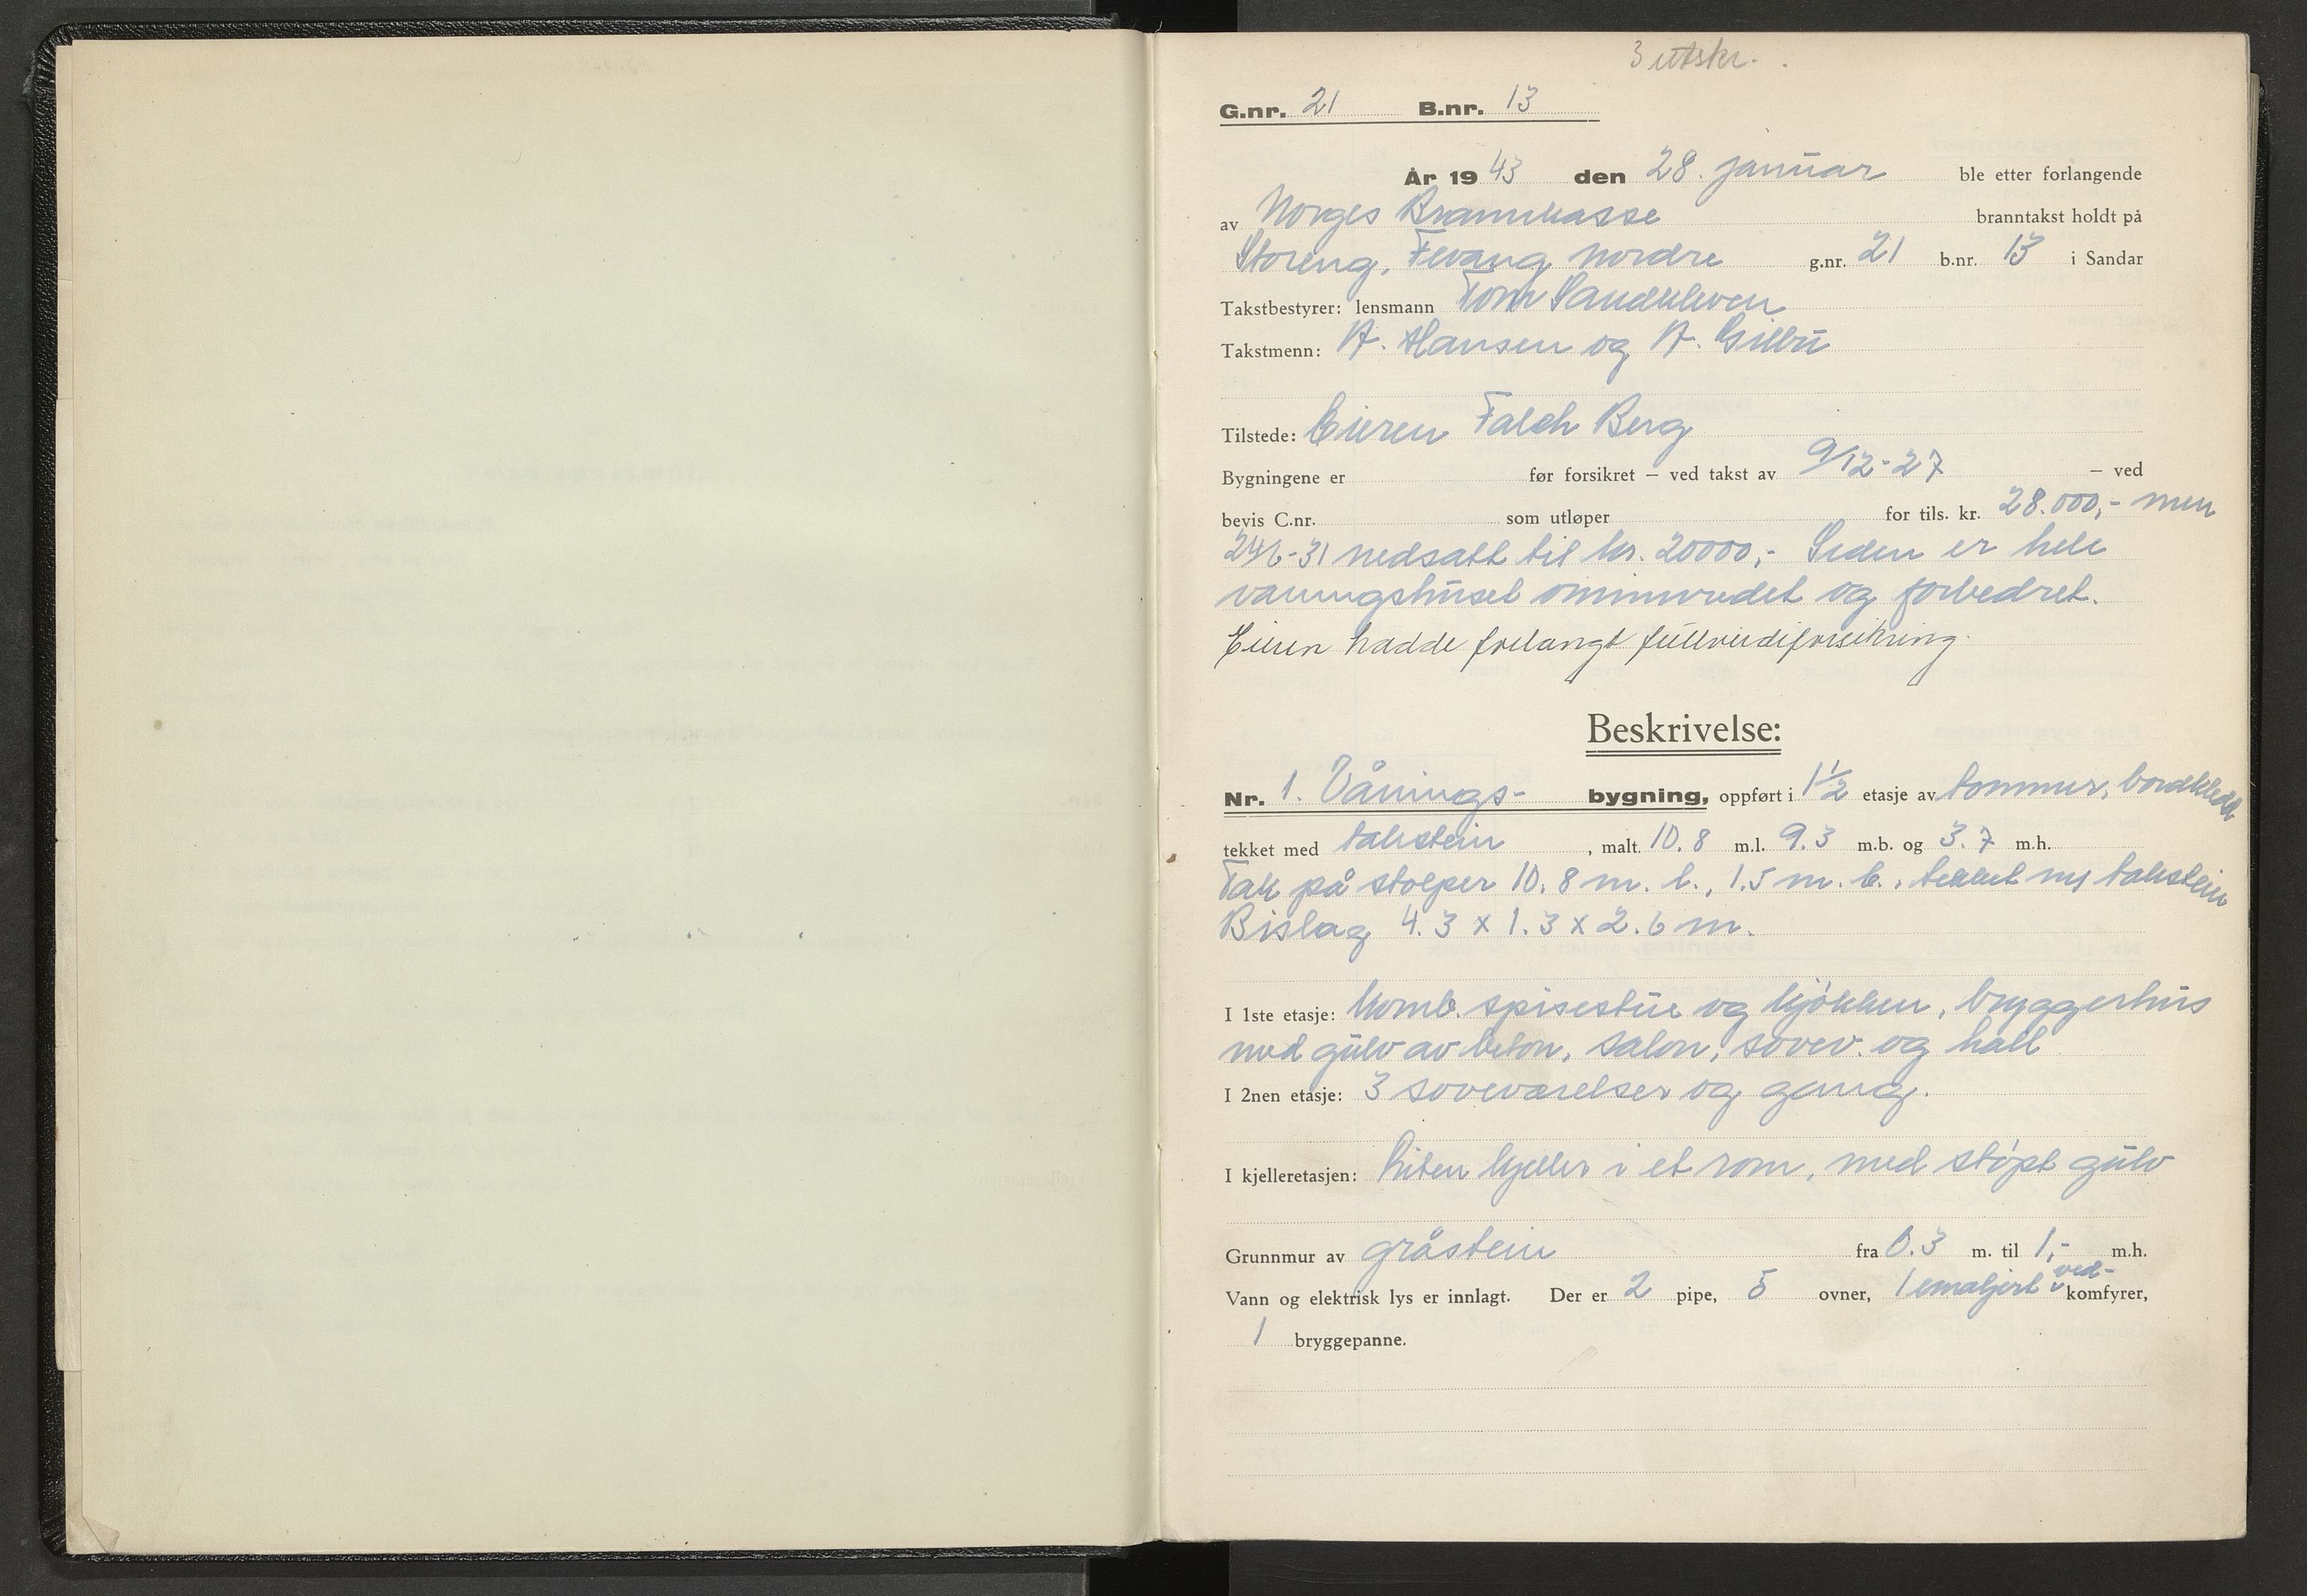 3 utskr.
G.nr. 21 B.nr. 13
År 1943 den 28. januar ble etter forlangende
av Norges Brannkasse branntakst holdt på
Storeng, Fevang nordre g.nr. 21 b.nr. 13 i Sandar
Takstbestyrer: lensmann Tom Sandkleven
Takstmenn: A. Hansen og A. Gillbu
Tilstede: Eieren Falch Berg
Bygningene er før forsikret – ved takst av 9/12-27 – ved
bevis C.nr. som utløper for tils. kr. 28.000,- men
24/6-31 nedsatt til kr. 20000,- Siden er hele
våningshuset ominnredet og forbedret.
Eieren hadde forlangt fullverdiforsikring.
Beskrivelse:
Nr. 1. Vånings- bygning, oppført i 1 1/2 etasje av tømmer, bordkledd
tekket med takstein , malt. 10.8 m.l. 9.3 m.b. og 3.7 m.h.
Tak på stolper 10.8 m. l., 1.5 m. b., tekket ny takstein
Bislag 4.3 x 1.3 x 2.6 m.
I 1ste etasje: Komb. spisestue og kjøkken, bryggerhus
med gulv av beton, salon, sovev. og hall
I 2nen etasje: 3 soveværelser og gang.
I kjelleretasjen: Liten kjeller i et rom, med støpt gulv
Grunnmur av gråstein fra 0.3 m. til 1,- m.h.
Vann og elektrisk lys er innlagt. Der er 2 pipe, 5 ovner, 1 emaljert ved- komfyrer,
1 bryggepanne.